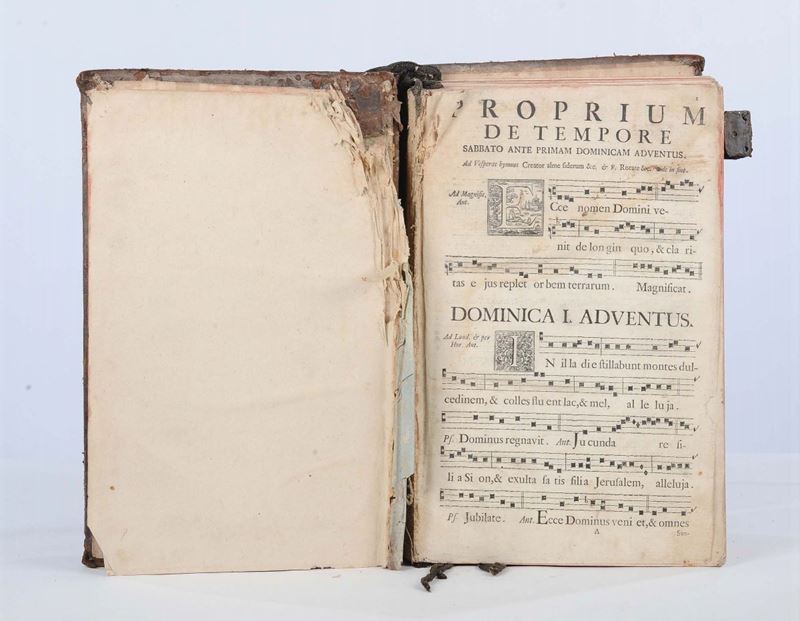 PROPRIUM
DE TEMPORE
SABBATO ANTE PRIMAM DOMINICAM ADVENTUS.
Ad Vesperas hymnus Creator alme siderum &c. & v. Rorate &c. in fine.
Ad Magnific. Ant.
ECce nomen Domini ve-
nit de lon gin quo, & cla ri-
tas e jus replet or bem terrarum. Magnificat.
DOMINICA I. ADVENTUS.
Ad Laud. & per Hor. Ant.
IN illa di e stillabunt montes dul-
cedinem, & colles flu ent lac, & mel, al le lu ja.
Ps. Dominus regnavit. Ant. Ju cunda re fi-
li a Si on, & exulta sa tis filia Jerusalem, alleluja.
Ps. Jubilate. Ant. Ecce Dominus veni et, & omnes
A
San-